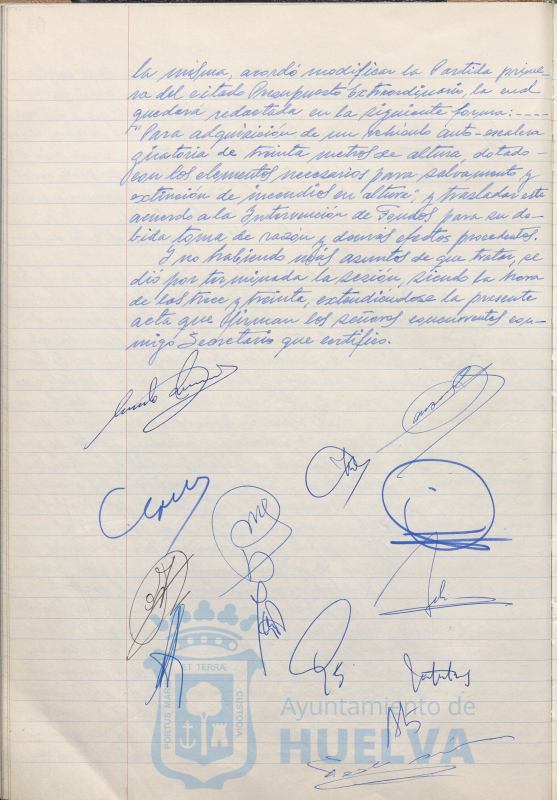 la misma, acordó modificar la Partida prime-
ra del citado Presupuesto Extraordinario, la cual
quedará redactada en la siguiente forma:----
"Para adquisición de un vehículo auto-escalera
giratoria de treinta metros de altura, dotado
con los elementos necesarios para salvamento y
extinción de incendios en altura", y trasladar este
acuerdo a la Intervención de Fondos para su de-
bida toma de razón y demás efectos procedentes.
Y no habiendo más asuntos de que tratar, se
dió por terminada la sesión, siendo la hora
de las trece y treinta, extendiéndose la presente
acta que firman los señores concurrentes con-
migo Secretario que certifico.
PORTUS MARIS ET TERRÆ CUSTODIA
Ayuntamiento de
HUELVA